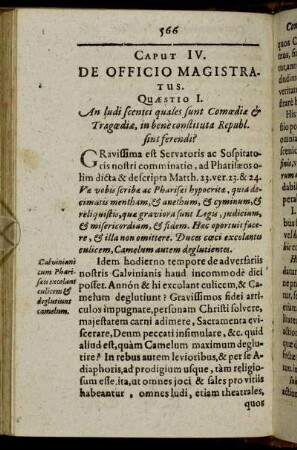 566
CAPUT IV.
DE OFFICIO MAGISTRA-
TUS.
QUÆSTIO I.
An ludi scenici quales sunt Comœdiæ &
Tragœdiæ, in benè constituta Republ.
sint ferendi?
GRavissima est Servatoris ac Sospitato-
ris nostri comminatio, ad Pharisæos o-
lim dicta & descripta Matth. 23. ver. 23. & 24.
Væ vobis scribæ ac Pharisæi hypocritæ, quia de-
cimatis mentham, & anethum, & cyminum, &
reliquistis, quæ graviora sunt Legis, judicium,
& misericordiam, & fidem. Hæc oportuit face-
re, & illa non omittere. Duces cæci excolantes
culicem, Camelum autem deglutientes.
Calviniani
cum Phari-
sæis excolant
culicem &
deglutiunt
camelum.
Idem hodierno tempore de adversariis
nostris Galvinianis haud incommodè dici
posset. Annón & hi excolant culicem, & Ca-
melum deglutiunt? Gravissimos fidei articu-
los impugnare, personam Christi solvere,
majestatem carni adimere, Sacramenta evi-
scerare, Deum peccati insimulare, &c. quid
aliud est, quàm Camelum maximum deglu-
tire? In rebus autem levioribus, & per se A-
diaphoris, ad prodigium usque, tàm religio-
sum esse, ita, ut omnes joci & sales pro vitiis
habeantur, omnes ludi, etiam theatrales,
quos